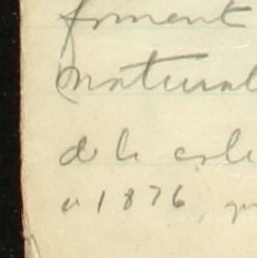 foment
natural
de la cole
a 1876, qu